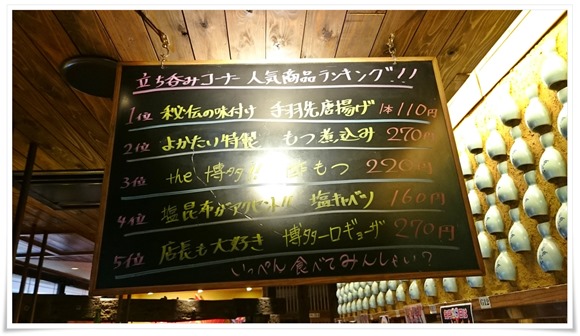 立ち呑みコーナー 人気商品ランキング!!
1位 秘伝の味付け 手羽先唐揚げ 1本110円
2位 よかたい特製 もつ煮込み 270円
3位 the 博多 もつ 220円
4位 塩昆布がアクセント!! 塩キャベツ 160円
5位 店長も大好き 博多一口ギョーザ 270円
いっぺん食べてみんしゃい?